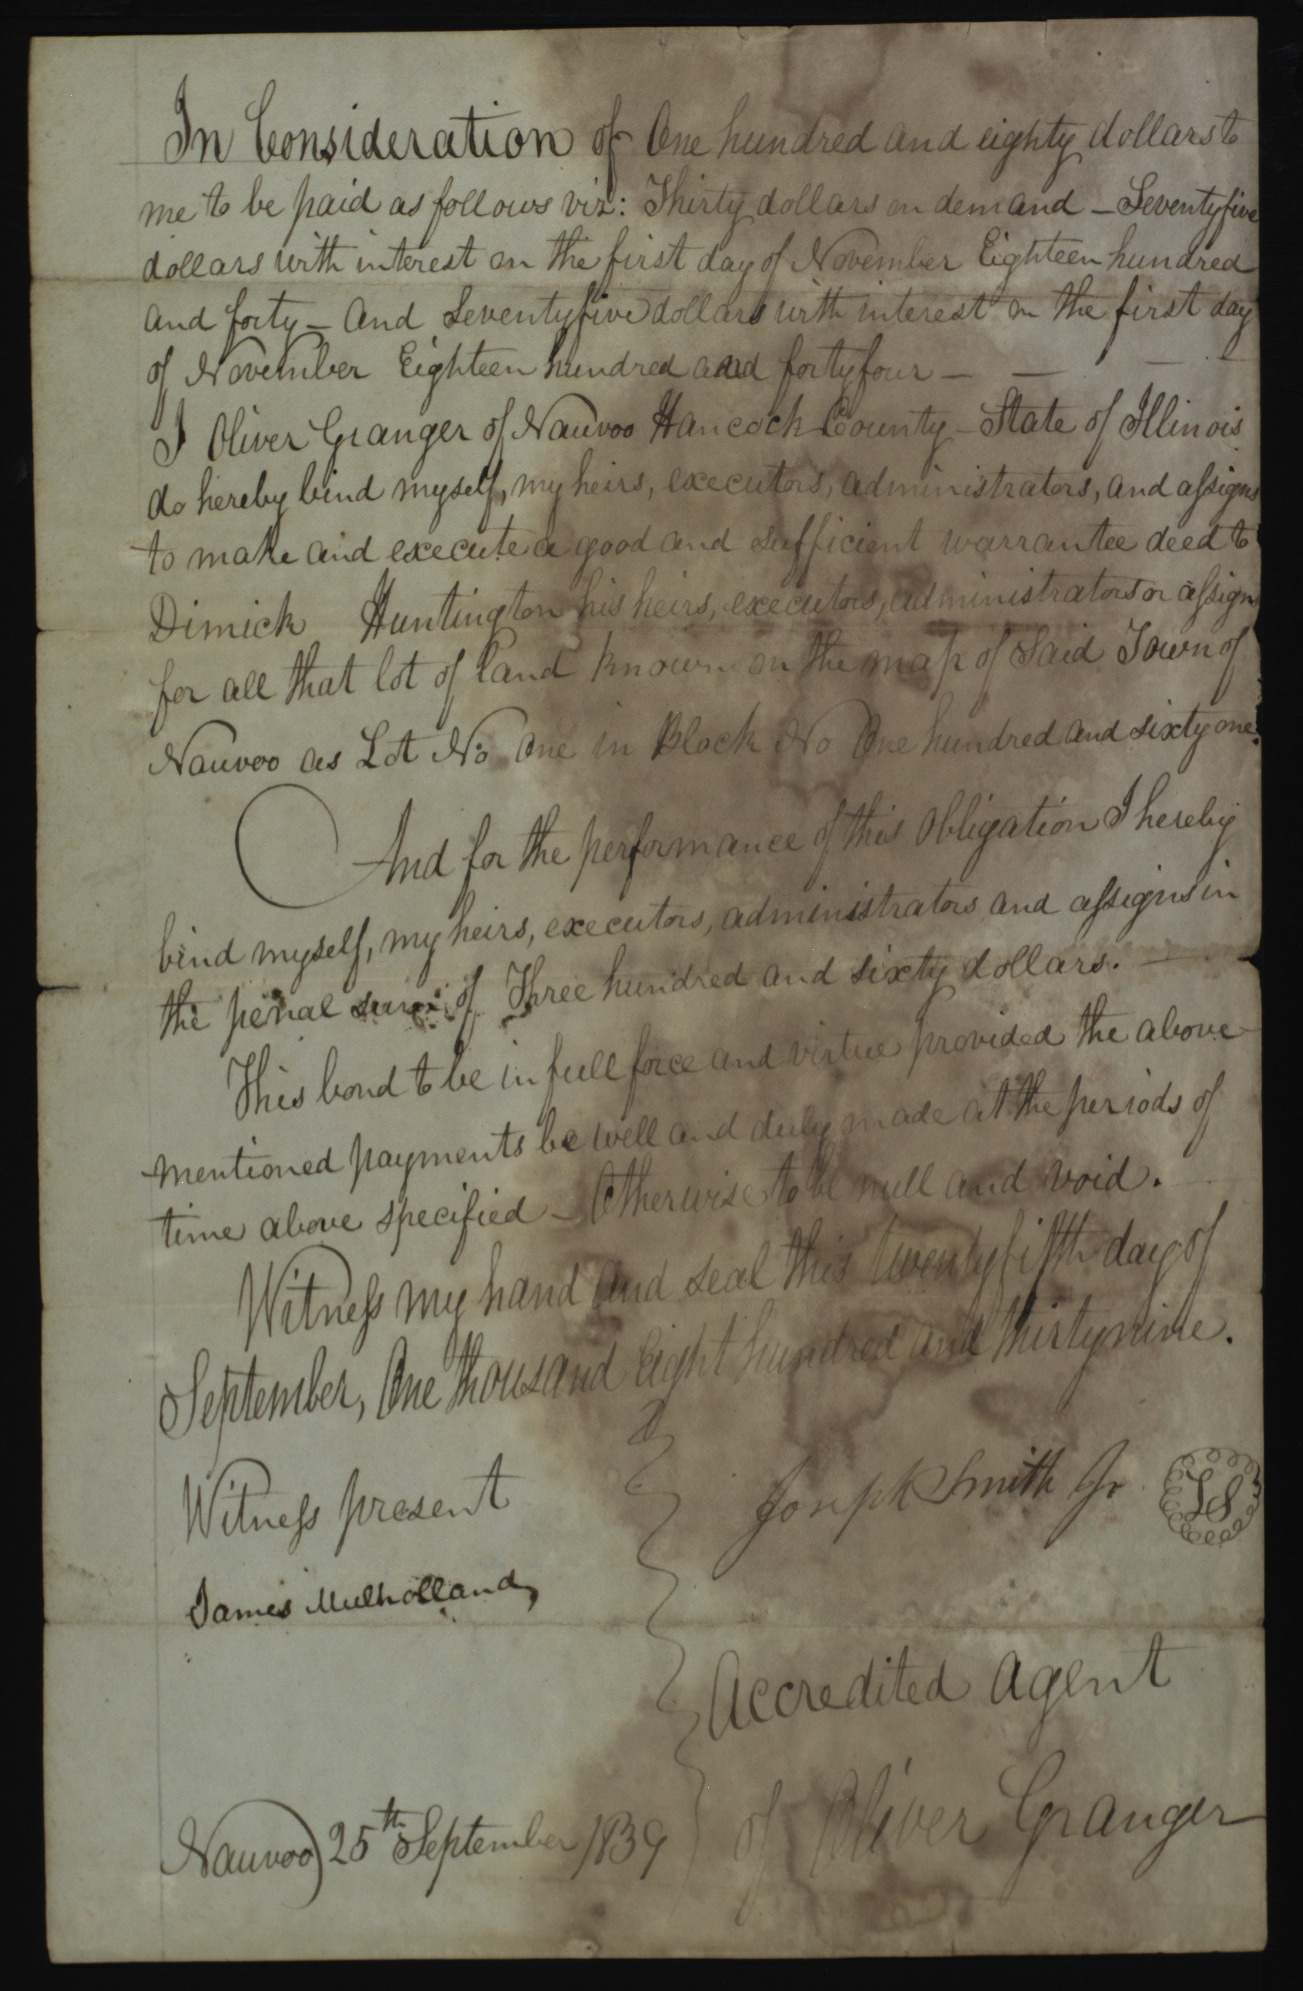 In Consideration of One hundred and eighty dollars to
me to be paid as follows viz: Thirty dollars on demand — Seventyfive
dollars with interest on the first day of November Eighteen hundred
and forty — And Seventyfive dollars with interest on the first day
of November Eighteen hundred and fortyfour — — — —
I Oliver Granger of Nauvoo Hancock County — State of Illinois
do hereby bind myself, my heirs, executors, administrators, and assigns
to make and execute a good and sufficient warrantee deed to
Dimick Huntington his heirs, executors, administrators or assigns
for all that lot of land known on the map of Said Town of
Nauvoo as Lot No one in Block No One hundred and sixty one.
And for the performance of this Obligation I hereby
bind myself, my heirs, executors, administrators and assigns in
the penal sum of Three hundred and sixty dollars. —
This bond to be in full force and virtue provided the above
mentioned payments be well and duly made at the periods of
time above specified — Otherwise to be null and void.
Witness my hand and seal this twentyfifth day of
September, One thousand Eight hundred and thirtynine.
Witness present
Joseph Smith Jr LS
James Mulholland,
Accredited Agent
of Oliver Granger
Nauvoo) 25th September 1839